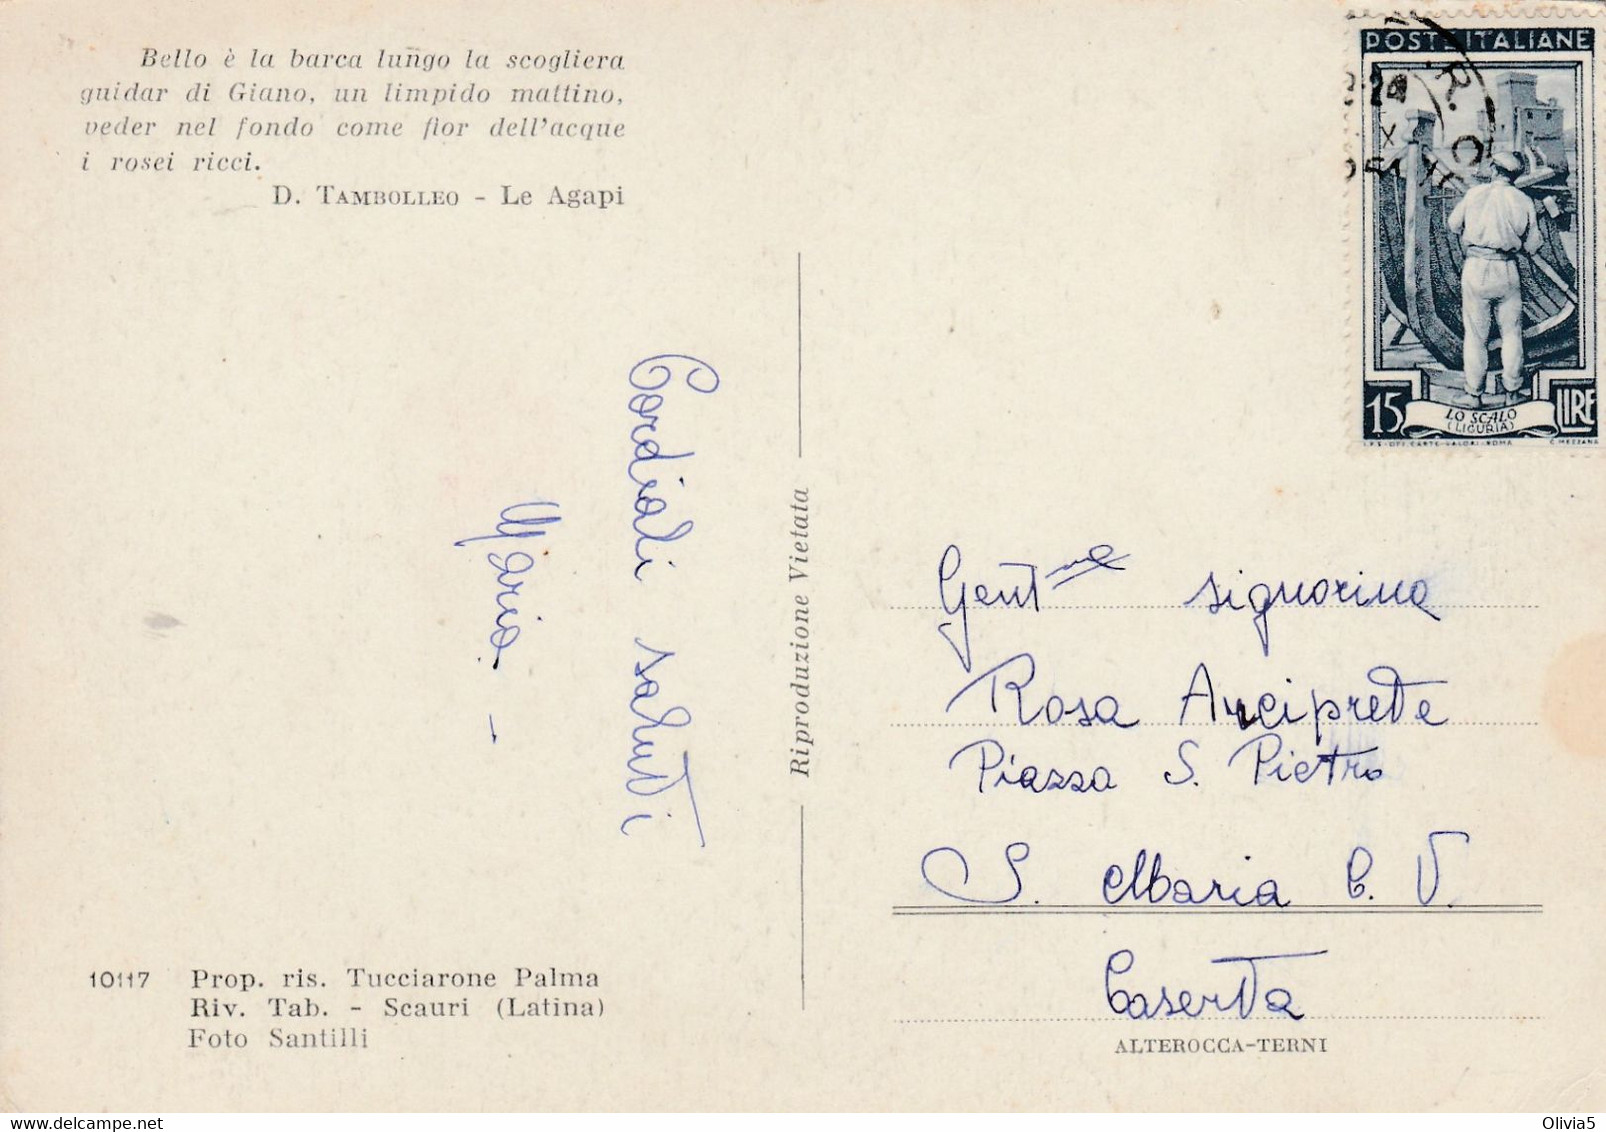 Bello è la barca lungo la scogliera
guidar di Giano, un limpido mattino,
veder nel fondo come fior dell'acque
i rosei ricci.
D. TAMBOLLEO - Le Agapi
Cordiali saluti
Mario. -
Riproduzione Vietata
POSTE ITALIANE
15 LIRE
LO SCALO
(LIGURIA)
I.P.S. OFF. CARTE-VALORI-ROMA C. MEZZANA
Gent.ma signorina
Rosa Arciprete
Piazza S. Pietro
S. Maria C. V.
Caserta
10117 Prop. ris. Tucciarone Palma
Riv. Tab. - Scauri (Latina)
Foto Santilli
ALTEROCCA-TERNI
Olivia5